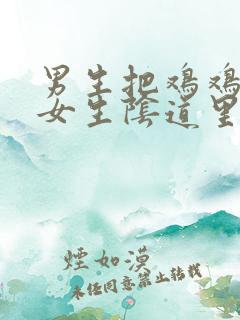 男生把鸡鸡
女生陰道里
煙如漠
未任同意禁止转载